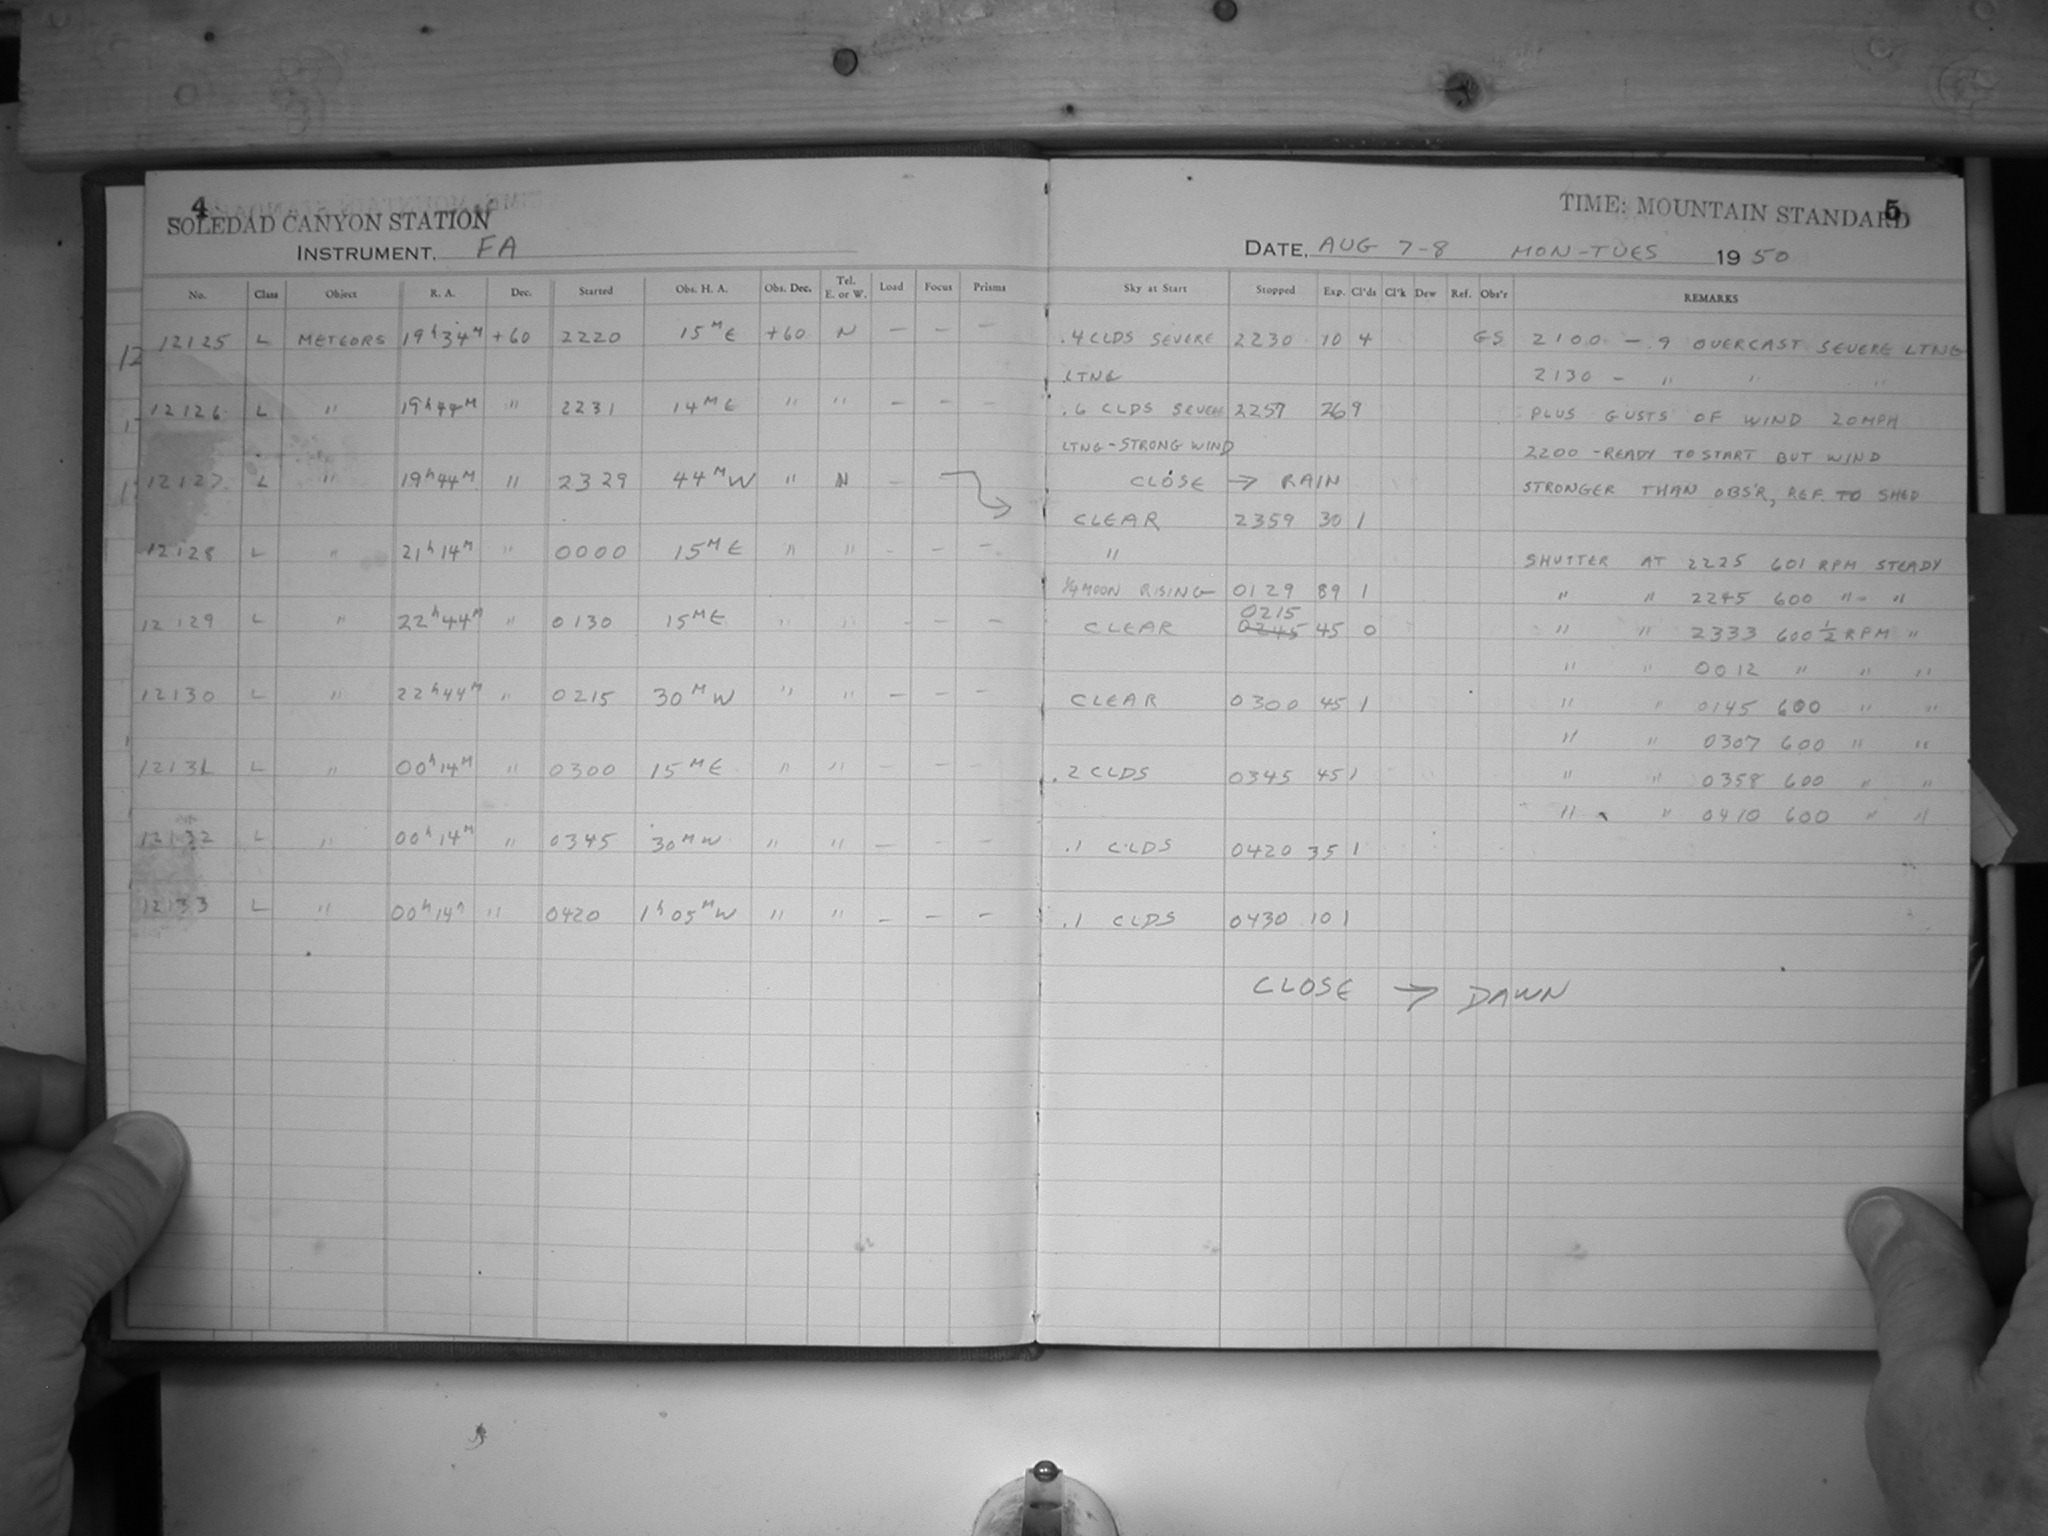 4
SOLEDAD CANYON STATION
INSTRUMENT. FA
No. Class Object R. A. Dec. Started Obs. H. A. Obs. Dec. Tel. E. or W. Load Focus Prisms
12125 L METEORS 19h34M +60 2220 15ME +60 N — — —
12126 L " 19h44M " 2231 14ME " " — — —
12127 L " 19h44M " 2329 44MW " N —
12128 L " 21h14M " 0000 15ME " " — — —
12129 L " 22h44M " 0130 15ME " " — — —
12130 L " 22h44M " 0215 30MW " " — — —
12131 L " 00h14M " 0300 15ME " " — — —
12132 L " 00h14M " 0345 30MW " " — — —
12133 L " 00h14M " 0420 1h05MW " " — — —
TIME: MOUNTAIN STANDARD
5
DATE, AUG 7-8 MON-TUES 1950
Sky at Start Stopped Exp. Cl'ds Cl'k Dew Ref. Obs'r REMARKS
.4 CLDS SEVERE 2230 10 4 GS 2100 - .9 OVERCAST SEVERE LTNG
LTNG 2130 - " " "
.6 CLDS SEVERE 2257 26 9 PLUS GUSTS OF WIND 20MPH
LTNG-STRONG WIND 2200 -READY TO START BUT WIND
CLOSE → RAIN STRONGER THAN OBS'R, REF. TO SHED
CLEAR 2359 30 1
" SHUTTER AT 2225 601 RPM STEADY
1/4 MOON RISING 0129 89 1 " " 2245 600 " "
0215
CLEAR 0245 45 0 " " 2333 600 1/2 RPM "
" " 0012 " " "
CLEAR 0300 45 1 " " 0145 600 " "
" " 0307 600 " "
.2 CLDS 0345 45 1 " " 0358 600 " "
" " 0410 600 " "
.1 CLDS 0420 35 1
.1 CLDS 0430 10 1
CLOSE → DAWN